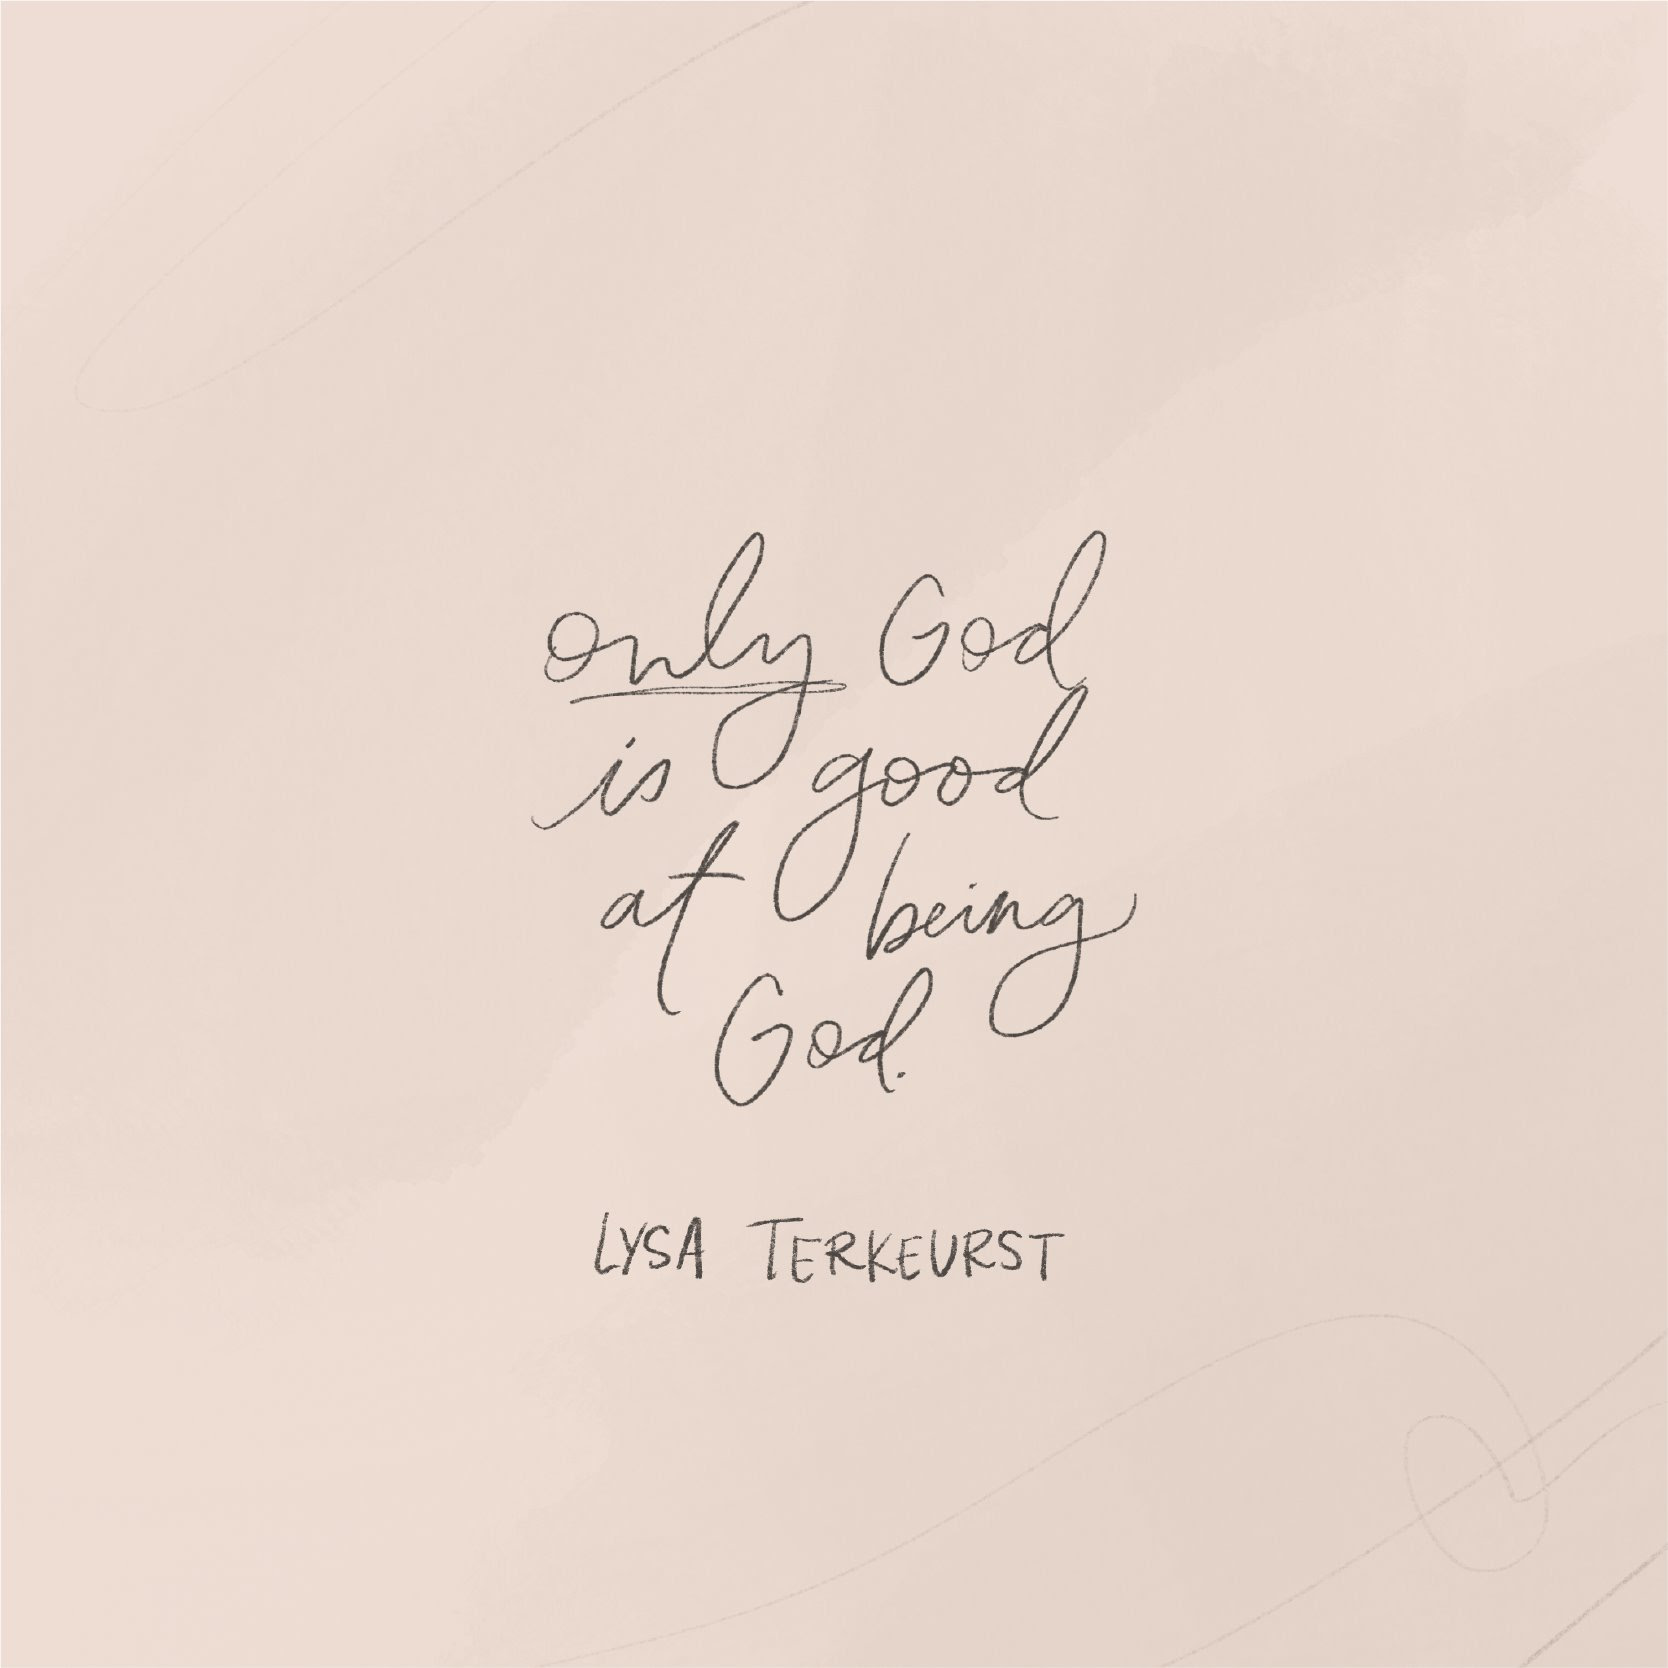 only God
is good
at being
God.
LYSA TERKEURST